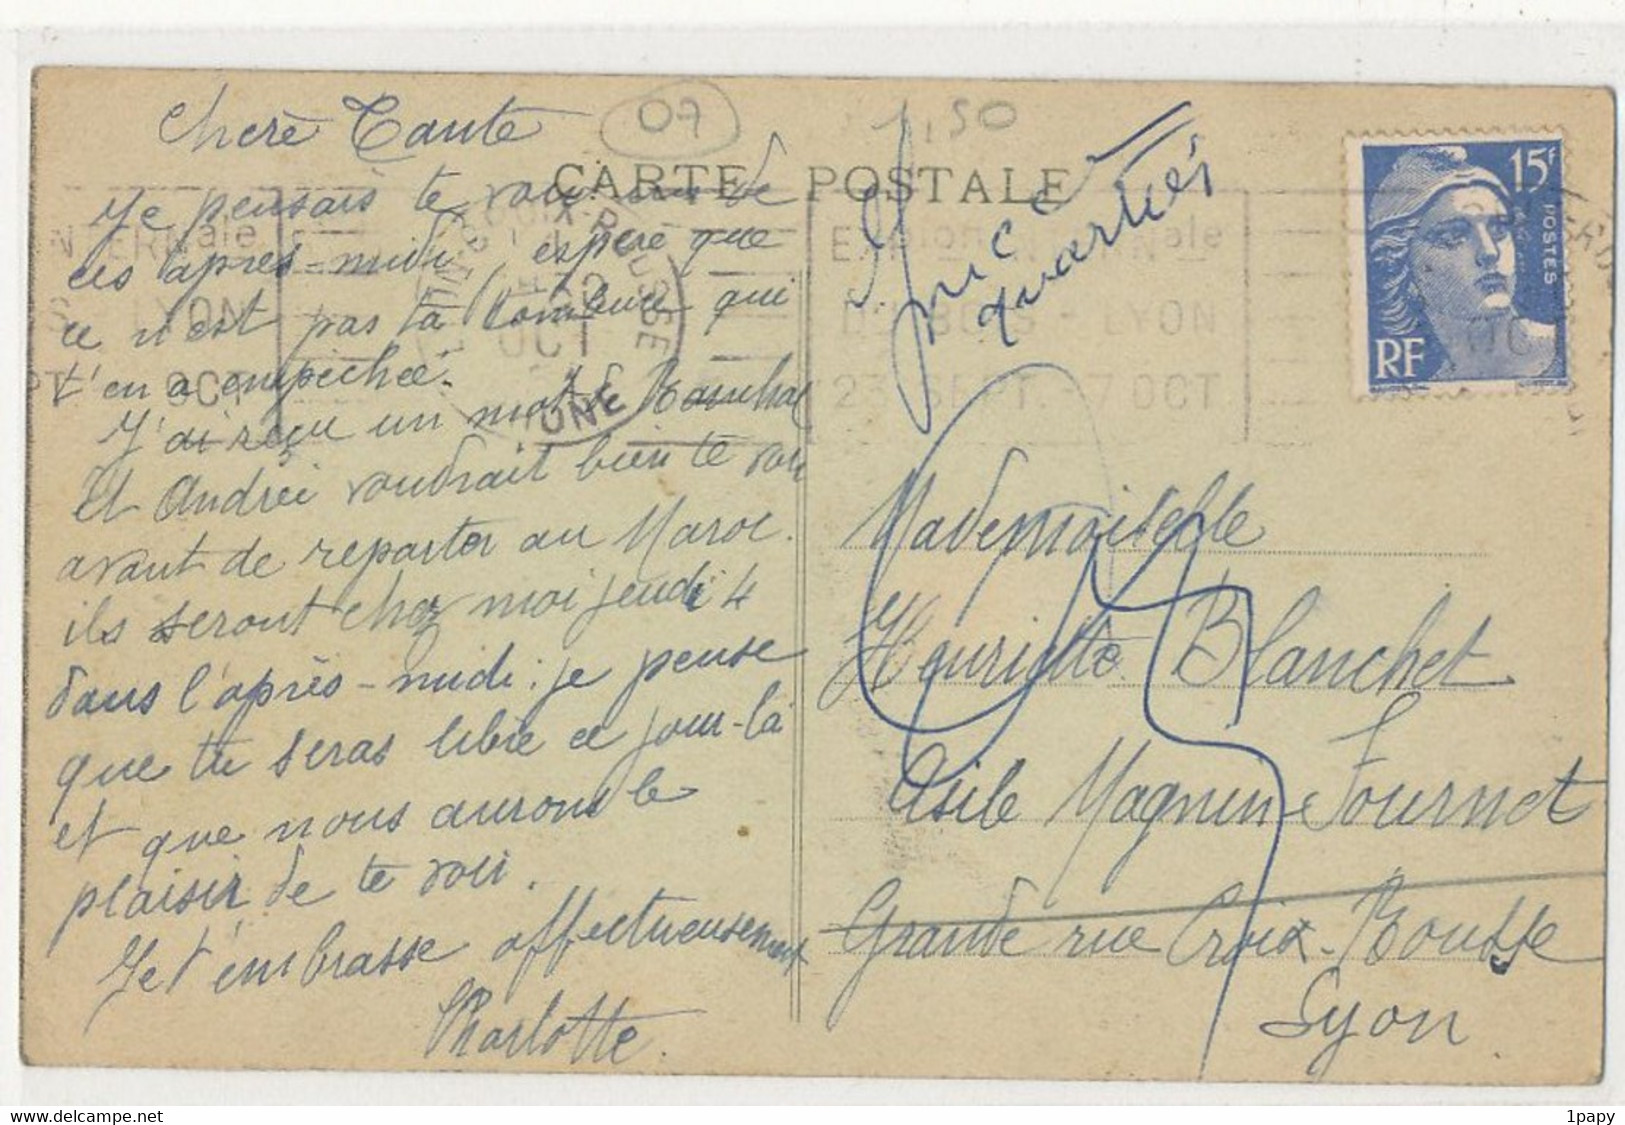 07
1,50
CARTE POSTALE
Chère Tante
Je pensais te voir de
ces après-midi, espère que
ce n'est pas ta qui
t'en a empêchée.
J'ai reçu un mot de
et Andrée voudrait bien te voir
avant de repartir au Maroc.
ils seront chez moi jeudi 4
dans l'après-midi : je pense
que tu seras libre ce jour-là
et que nous aurons le
plaisir de te voir.
Je t'embrasse affectueusement
Charlotte.
15F
POSTES
RF
CROIX-ROUSSE
OCT
RHÔNE
LYON
OCT
LYON
23 SEPT - 7 OCT
Mademoiselle
Henriette Blanchet
Asile Magnin-Fournet
Grande rue Croix-Rousse
Lyon
1papy
delcampe.net